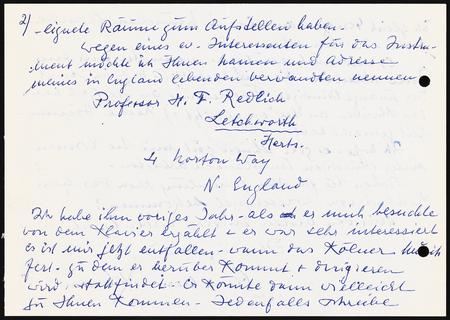 2/ -eignete Räume zum Aufstellen haben.
wegen eines ev. Interessenten für das Instru-
-ment möchte ich Ihnen Namen und Adresse
meines in England lebenden Verwandten nennen
Professor H. F. Redlich
Letchworth
Herts.
4 Norton Way
N. England
Ich habe ihm voriges Jahr - als er mich besuchte
von dem Klavier erzählt + er war sehr interessiert
es ist mir jetzt entfallen - wann das Kölner Musik
fest - zu dem er herüber kommt + dirigieren
wird, stattfindet - er könnte dann vielleicht
zu Ihnen kommen - Jedenfalls schreibe